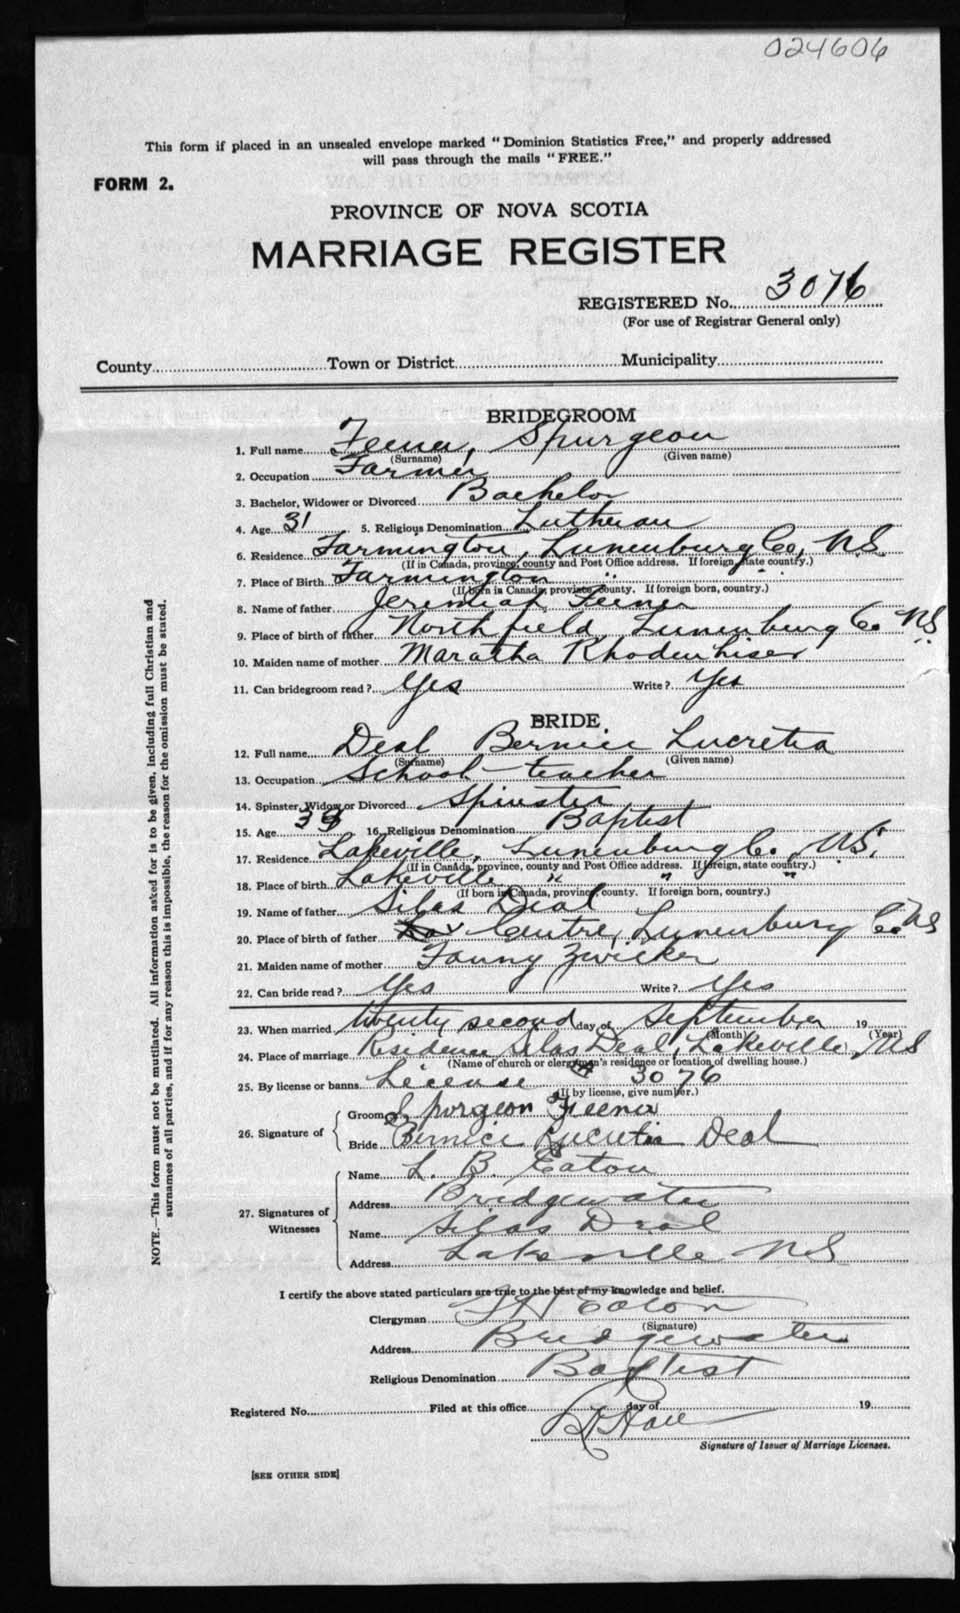 024606
This form if placed in an unsealed envelope marked "Dominion Statistics Free," and properly addressed
will pass through the mails "FREE."
FORM 2.
PROVINCE OF NOVA SCOTIA
MARRIAGE REGISTER
REGISTERED No. 3076
(For use of Registrar General only)
County Town or District Municipality
BRIDEGROOM
1. Full name Feener, Spurgeon
(Surname) (Given name)
2. Occupation Farmer
3. Bachelor, Widower or Divorced Bachelor
4. Age 31 5. Religious Denomination Lutheran
6. Residence Farmington, Lunenburg Co, NS
(If in Canada, province, county and Post Office address. If foreign, state country.)
7. Place of Birth Farmington " " "
(If born in Canada, province, county. If foreign born, country.)
8. Name of father Jeremiah Feener
9. Place of birth of father Northfield, Lunenburg Co NS
10. Maiden name of mother Maratha Rhodenhiser
11. Can bridegroom read? Yes Write? Yes
BRIDE
12. Full name Deal Bernice Lucretia
(Surname) (Given name)
13. Occupation School-teacher
14. Spinster, Widow or Divorced Spinster
15. Age 33 16. Religious Denomination Baptist
17. Residence Lakeville, Lunenburg Co., NS.
(If in Canada, province, county and Post Office address. If foreign, state country.)
18. Place of birth Lakeville " " "
(If born in Canada, province, county. If foreign born, country.)
19. Name of father Silas Deal
20. Place of birth of father Centre, Lunenburg Co NS
21. Maiden name of mother Fanny Zwicker
22. Can bride read? Yes Write? Yes
23. When married twenty second day of September 19
(Month) (Year)
24. Place of marriage Residence Silas Deal, Lakeville, NS
(Name of church or clergyman's residence or location of dwelling house.)
25. By license or banns License 3076
(If by license, give number.)
26. Signature of Groom Spurgeon Feener
Bride Bernice Lucretia Deal
27. Signatures of Witnesses Name L. B. Eaton
Address Bridgewater
Name Silas Deal
Address Lakeville NS
I certify the above stated particulars are true to the best of my knowledge and belief.
Clergyman Eaton
(Signature)
Address Bridgewater
Religious Denomination Baptist
Registered No. Filed at this office day of 19
Signature of Issuer of Marriage Licenses.
[SEE OTHER SIDE]
NOTE.—This form must not be mutilated. All information asked for is to be given, including full Christian and
surnames of all parties, and if for any reason this is impossible, the reason for the omission must be stated.